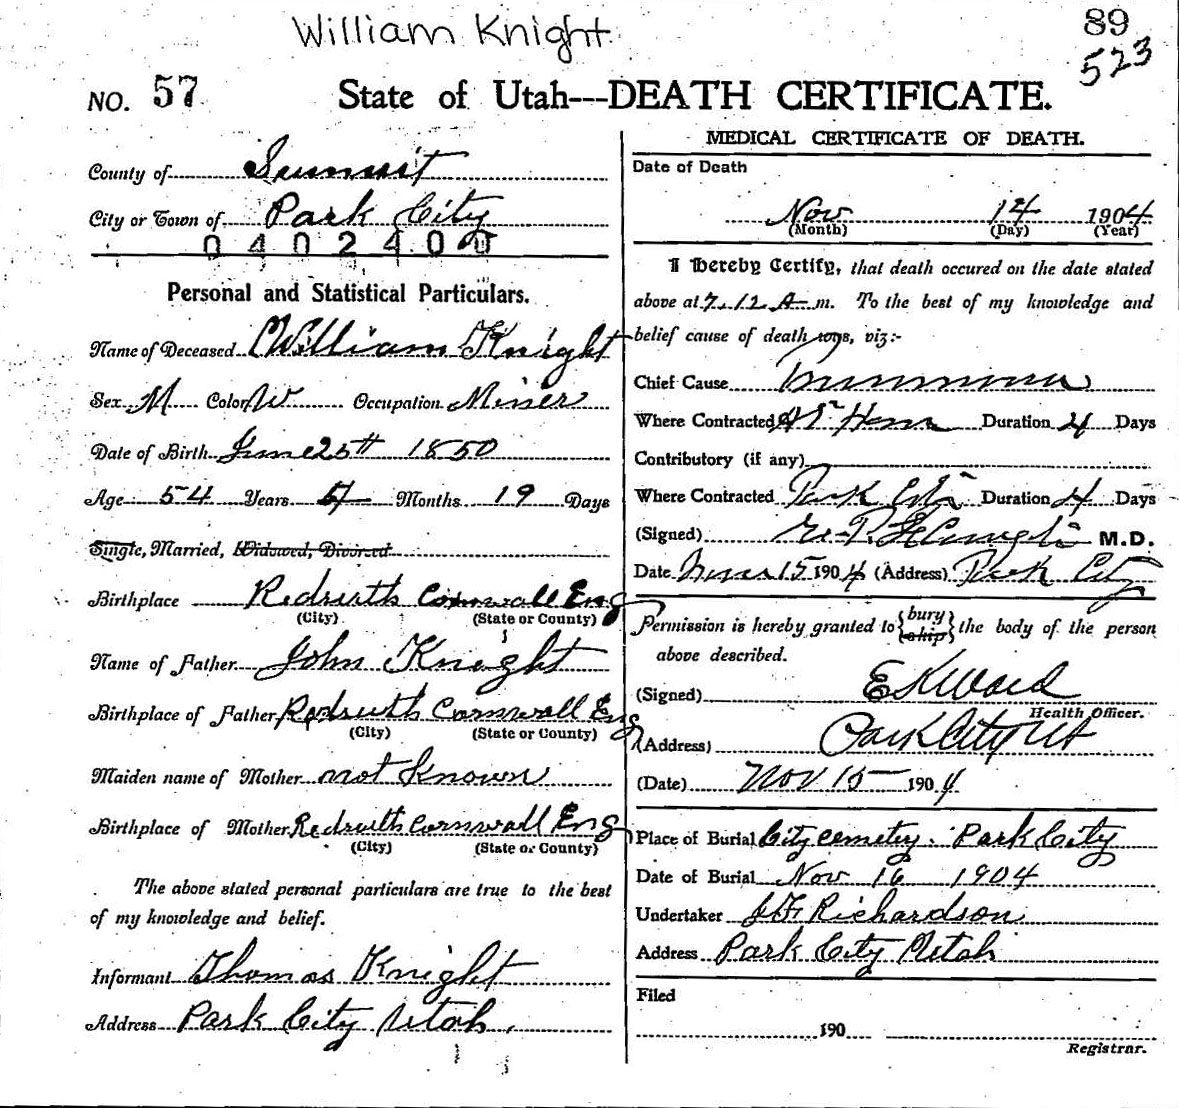 William Knight
89
523
NO. 57
State of Utah---DEATH CERTIFICATE.
County of Summit
City or Town of Park City
0 4 0 2 4 0 0
Personal and Statistical Particulars.
Name of Deceased William Knight
Sex M Color W Occupation Miner
Date of Birth June 25th 1850
Age 54 Years Months 19 Days
Single, Married, Widowed, Divorced
Birthplace Redruth Cornwall Eng
(City) (State or County)
Name of Father John Knight
Birthplace of Father Redruth Cornwall Eng
(City) (State or County)
Maiden name of Mother not Known
Birthplace of Mother Redruth Cornwall Eng
(City) (State or County)
The above stated personal particulars are true to the best
of my knowledge and belief.
Informant Thomas Knight
Address Park City Utah.
MEDICAL CERTIFICATE OF DEATH.
Date of Death
Nov 14 1904
(Month) (Day) (Year)
I Hereby Certify, that death occured on the date stated
above at 7.12 A m. To the best of my knowledge and
belief cause of death was, viz:-
Chief Cause Pneumonia
Where Contracted At Home Duration 4 Days
Contributory (if any)
Where Contracted Park City Duration 4 Days
(Signed) M.D.
Date 15 1904 (Address) Park City
Permission is hereby granted to {bury
ship} the body of the person
above described.
(Signed) E K Ward
Health Officer.
(Address) Park City Ut
(Date) Nov 15 1904
Place of Burial City cemetery. Park City
Date of Burial Nov 16 1904
Undertaker Richardson
Address Park City Utah
Filed
190
Registrar.